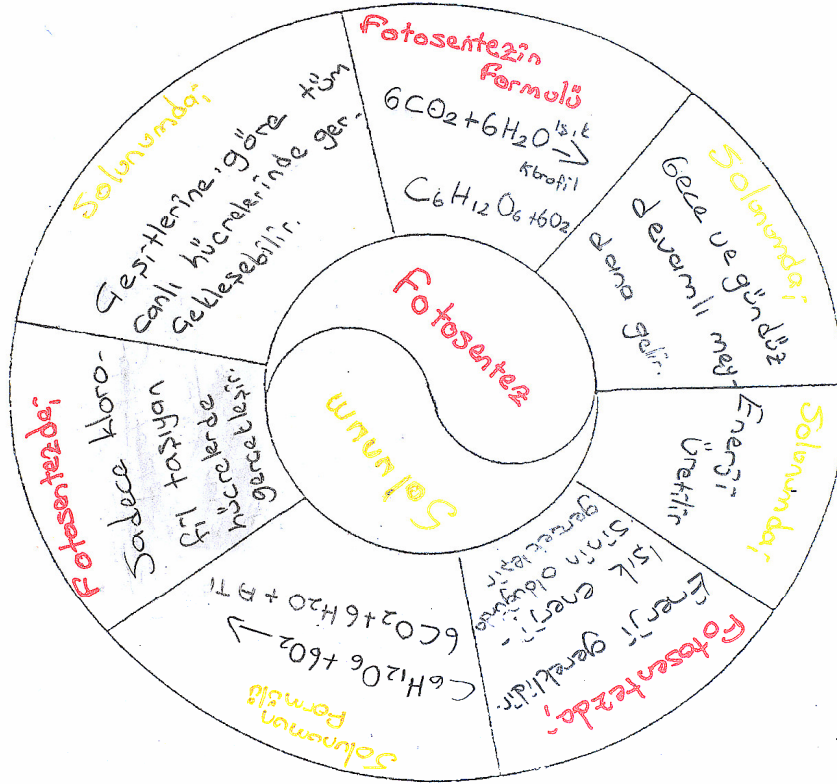 Fotosentez
Solunum
Fotosentezin
Formulü
6CO2+6H2O ışık
→
Klorofil
C6H12O6+6O2
Solunumda;
Gece ve gündüz
devamlı mey-
dana gelir.
Solunumda;
Enerji
üretilir
Fotosentezda;
Enerji gereklidir.
Işık enerji-
sinin olduğunda
gerçekleşir
Solunumun
Formülü
C6H12O6+6O2
→
6CO2+6H2O+ATP
Fotosentezda;
Sadece kloro-
fil taşıyan
hücrelerde
gerçekleşir.
Solunumda;
Çeşitlerine göre tüm
canlı hücrelerinde ger-
çekleşebilir.